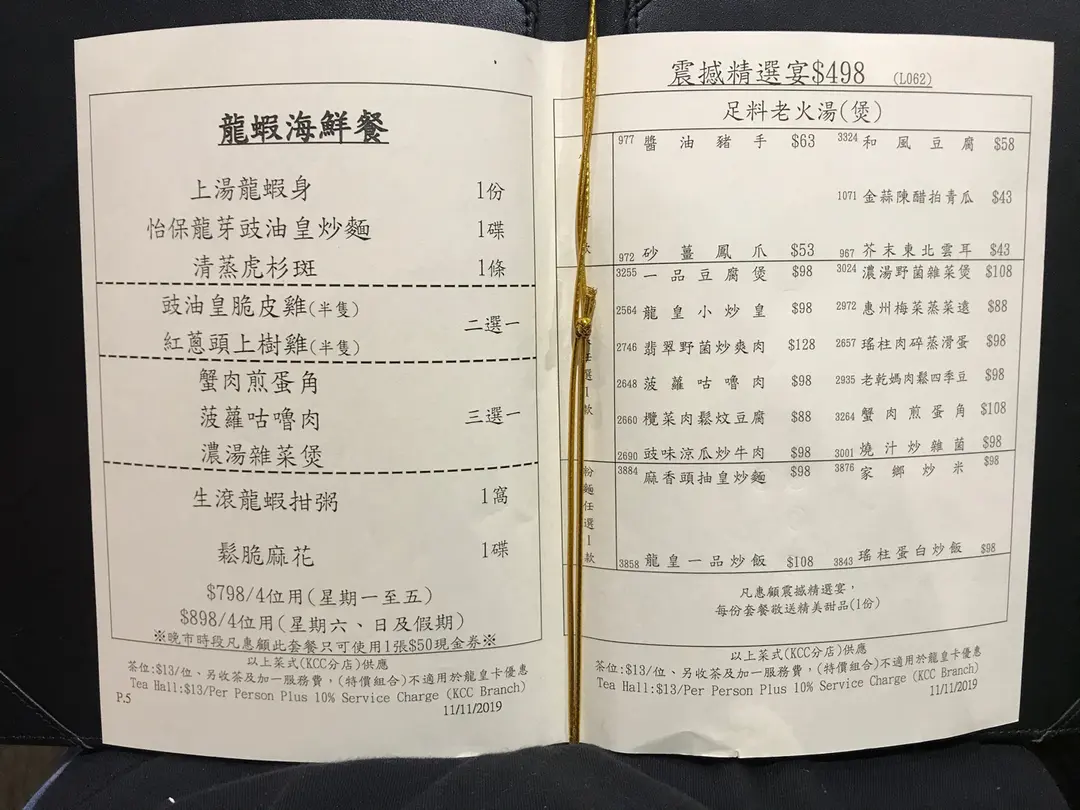 龍蝦海鮮餐
上湯龍蝦身 1份
怡保龍芽豉油皇炒麵 1碟
清蒸虎杉斑 1條
豉油皇脆皮雞(半隻)
二選一
紅蔥頭上樹雞(半隻)
蟹肉煎蛋角
菠蘿咕嚕肉 三選一
濃湯雜菜煲
生滾龍蝦拑粥 1窩
鬆脆麻花 1碟
$798/4位用(星期一至五)
$898/4位用(星期六、日及假期)
※晚市時段凡惠顧此套餐只可使用1張$50現金券※
以上菜式(KCC分店)供應
茶位:$13/位、另收茶及加一服務費，(特價組合)不適用於龍皇卡優惠
Tea Hall:$13/Per Person Plus 10% Service Charge (KCC Branch)
P.5
11/11/2019
震撼精選宴$498 (L062)
足料老火湯(煲)
977 醬油豬手 $63 3324 和風豆腐 $58
1071 金蒜陳醋拍青瓜 $43
款
972 砂薑鳳爪 $53 967 芥末東北雲耳 $43
3255 一品豆腐煲 $98 3024 濃湯野菌雜菜煲 $108
2564 龍皇小炒皇 $98 2972 惠州梅菜蒸菜遠 $88
2746 翡翠野菌炒爽肉 $128 2657 瑤柱肉碎蒸滑蛋 $98
任選1款
2648 菠蘿咕嚕肉 $98 2935 老乾媽肉鬆四季豆 $98
2660 欖菜肉鬆炆豆腐 $88 3264 蟹肉煎蛋角 $108
2690 豉味涼瓜炒牛肉 $98 3001 燒汁炒雜菌 $98
粉麵任選1款
3884 麻香頭抽皇炒麵 $98 3876 家鄉炒米 $98
3858 龍皇一品炒飯 $108 3843 瑤柱蛋白炒飯 $98
凡惠顧震撼精選宴，
每份套餐敬送精美甜品(1份)
以上菜式(KCC分店)供應
茶位:$13/位、另收茶及加一服務費，(特價組合)不適用於龍皇卡優惠
Tea Hall:$13/Per Person Plus 10% Service Charge (KCC Branch)
11/11/2019